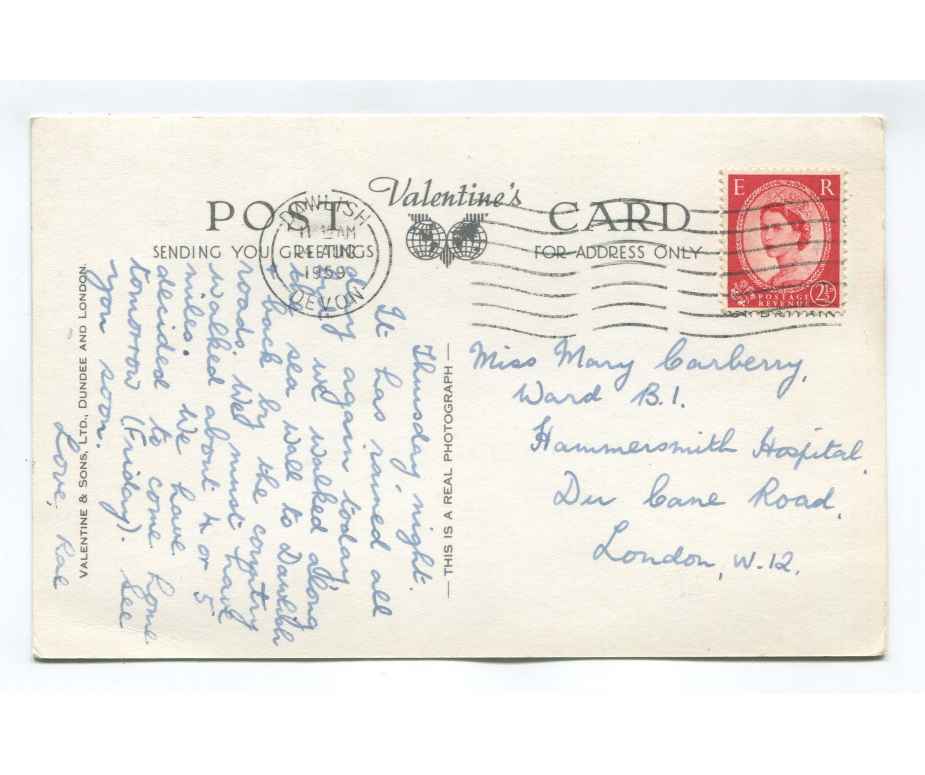 POST
Valentine's
CARD
SENDING YOU GREETINGS
FOR ADDRESS ONLY
DAWLISH
AM
1959
DEVON
E R
POSTAGE
REVENUE
2½D
Thursday night.
It has rained all
day again today
but we walked along
by sea wall to Dawlish
& back by the country
roads. We must have
walked about 4 or 5
miles. We have
decided to come home
tomorrow (Friday). See
you soon.
Love, Rae
VALENTINE & SONS, LTD., DUNDEE AND LONDON.
— THIS IS A REAL PHOTOGRAPH —
Miss Mary Carberry,
Ward B.1.
Hammersmith Hospital,
Du Cane Road,
London, W.12.